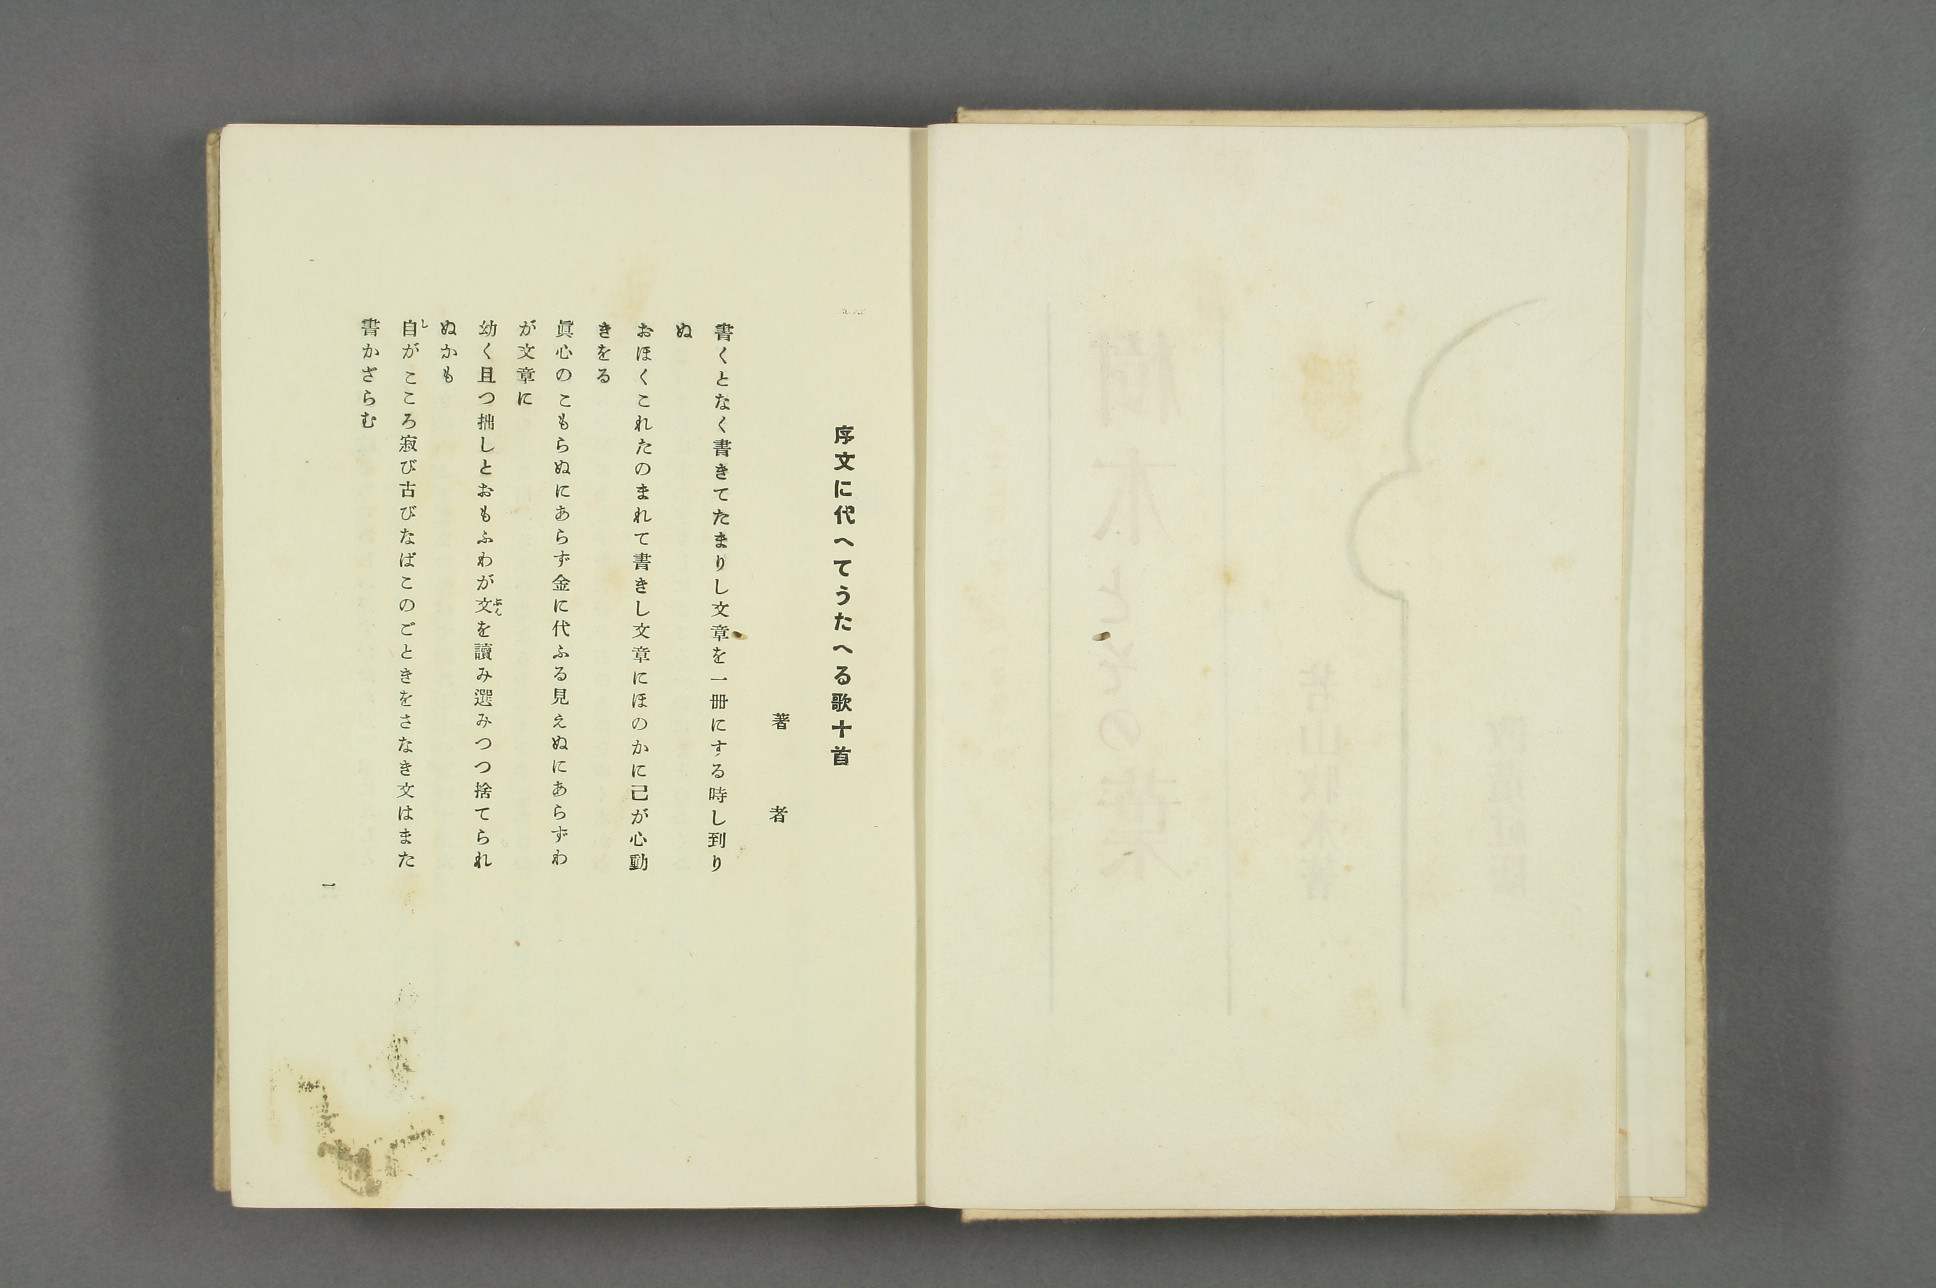 序文に代へてうたへる歌十首
著者
書くとなく書きてたまりし文章を一冊にする時し到り
ぬ
おほくこれたのまれて書きし文章にほのかに己が心動
きをる
眞心のこもらぬにあらず金に代ふる見えぬにあらずわ
が文章に
ぶん
幼く且つ拙しとおもふわが文を讀み選みつつ捨てられ
ぬかも
し
自がこころ寂び古びなばこのごときをさなき文はまた
書かざらむ
一